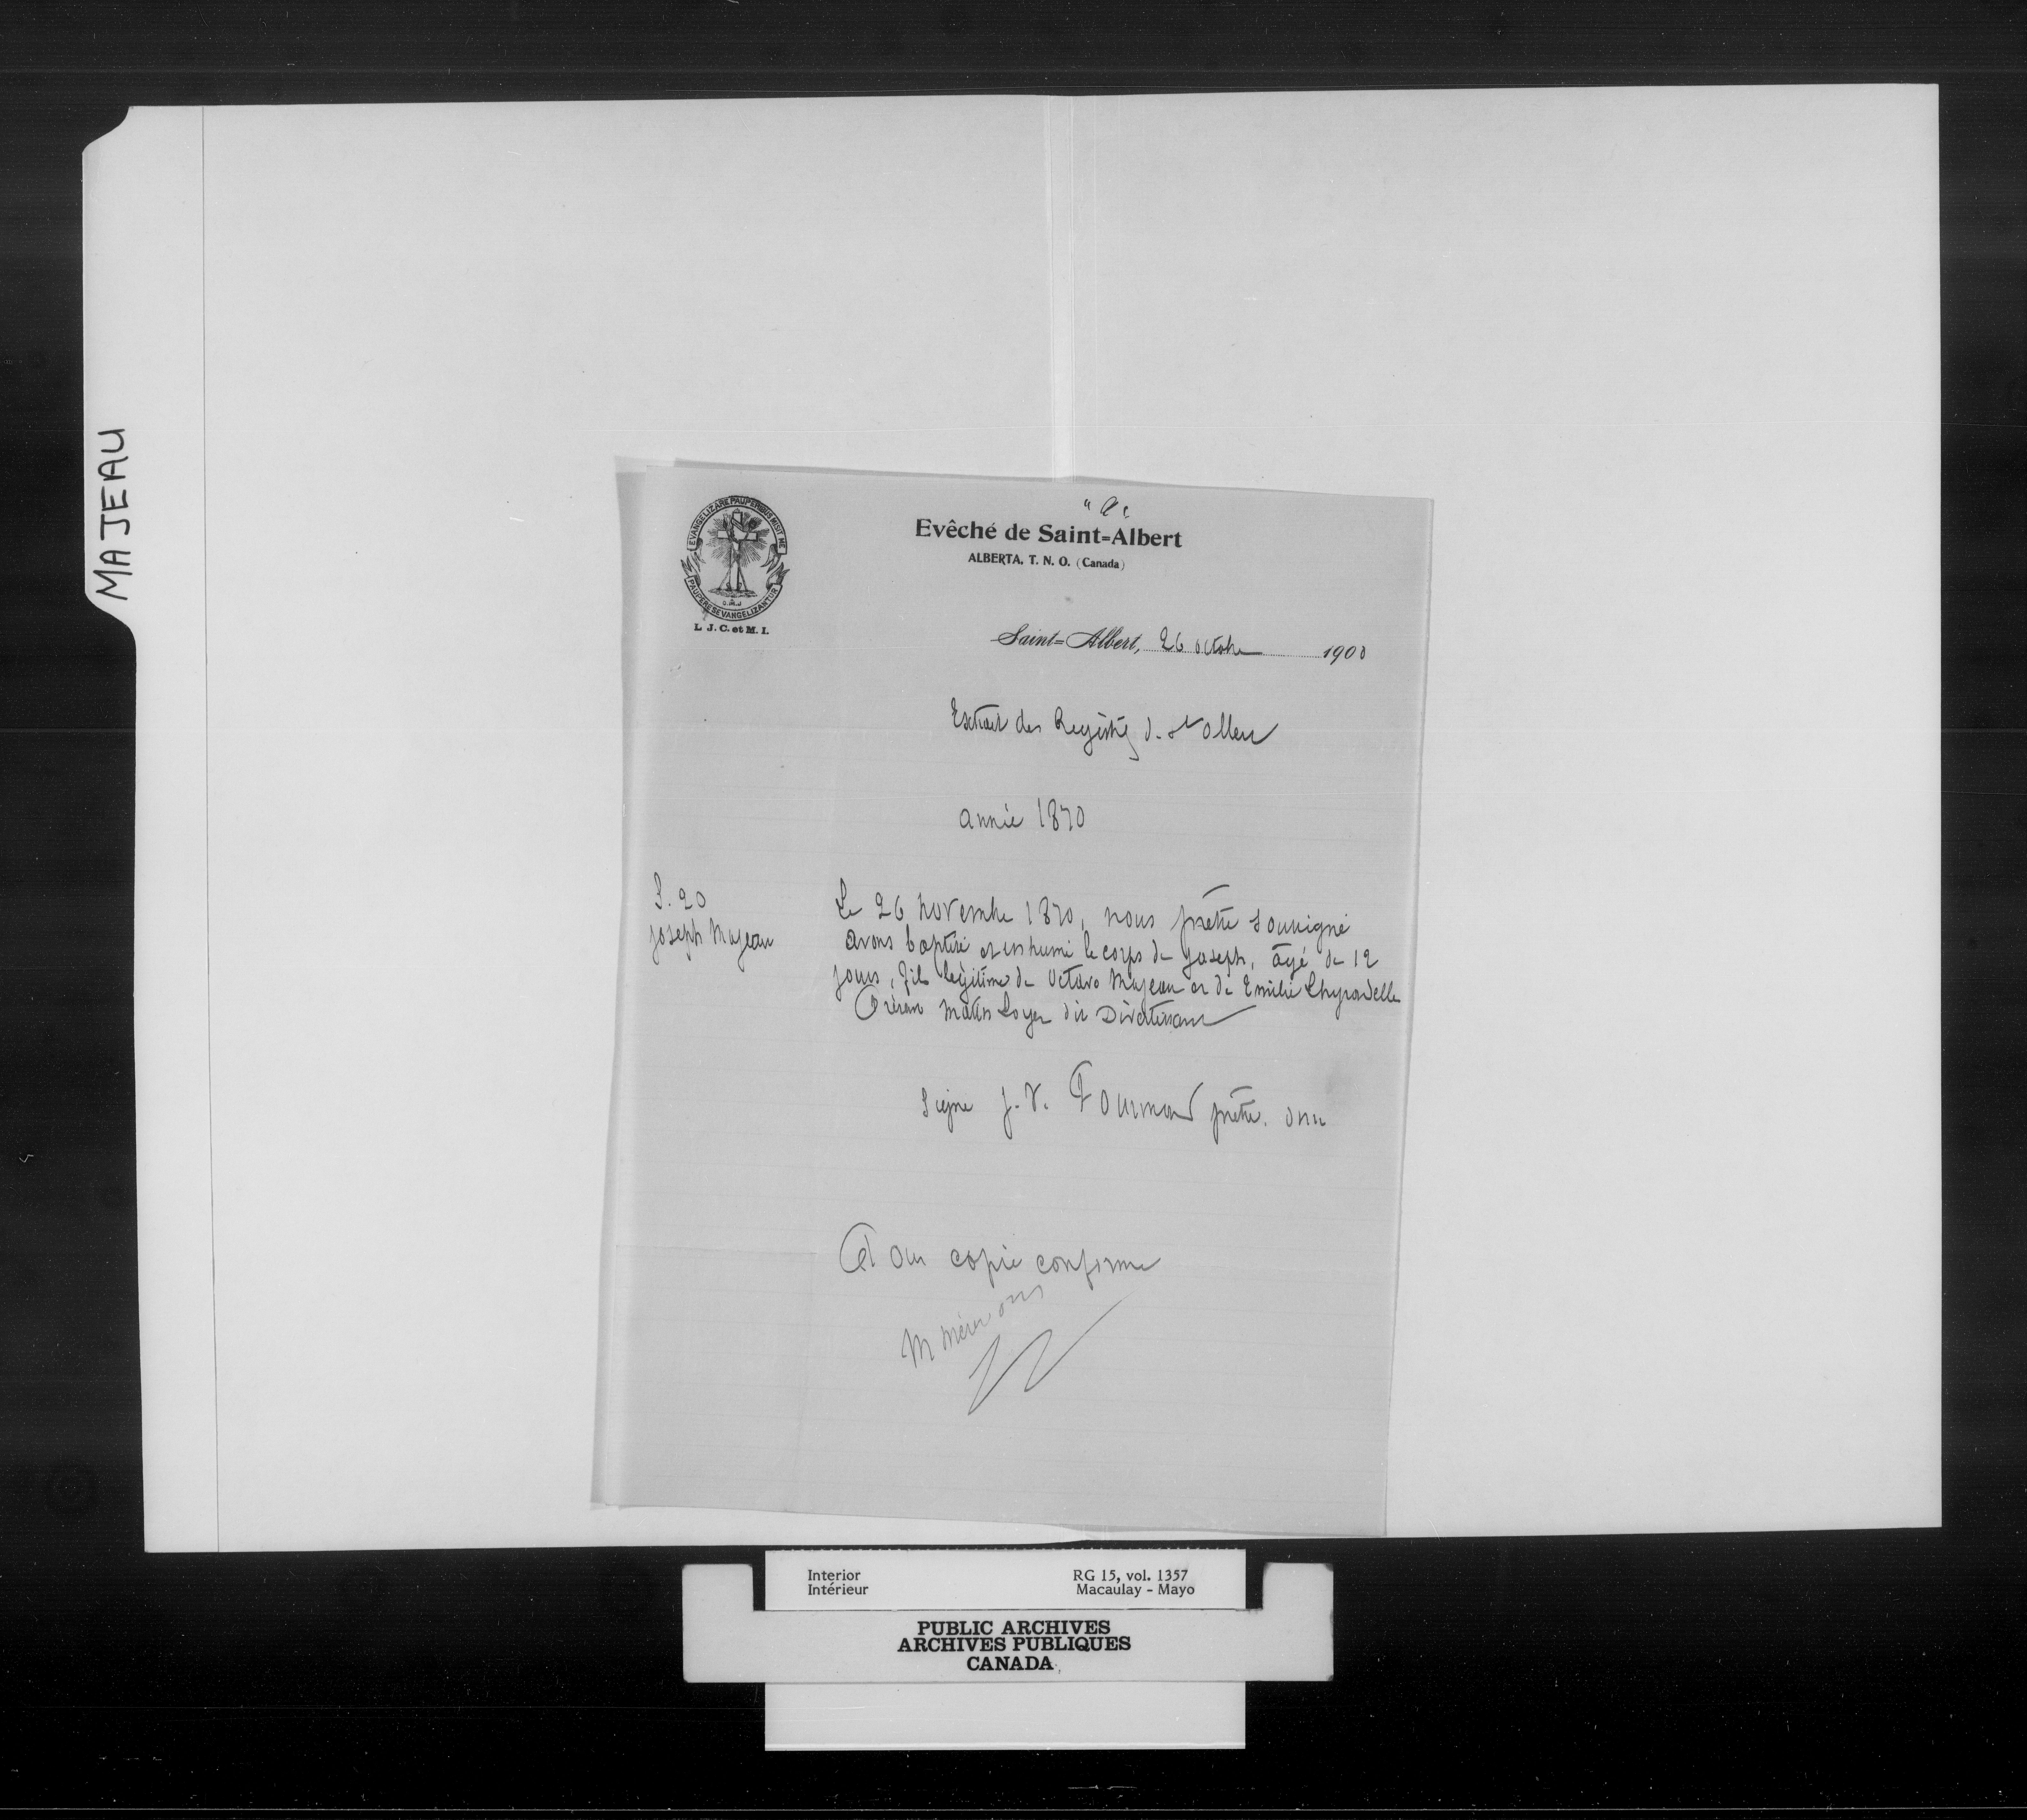 MAJEAU
"a"
EVANGELIZARE PAUPERIBUS MISIT ME
PAUPERES EVANGELIZANTUR
O.M.J
L. J. C. et M. I.
Evêché de Saint=Albert
ALBERTA, T. N. O. (Canada)
Saint=Albert, 26 octobre 1900
Extrait des Registres d. St Albert
année 1870
S. 20
Joseph Majeau
Le 26 novembre 1870, nous prêtre soussigné
avons baptisé et inhumé le corps de Joseph, âgé de 12
jours, fils légitime de Octave Majeau et de Emilie
Présent Loyer dit Divertissant
Signé J. V. Fourmond prêtre. omi
Pour copie conforme
M Mérer omi
Interior
Intérieur
RG 15, vol. 1357
Macaulay - Mayo
PUBLIC ARCHIVES
ARCHIVES PUBLIQUES
CANADA